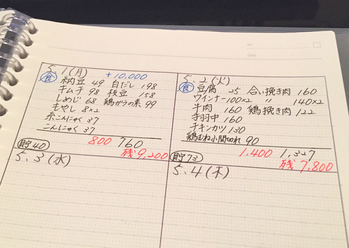 5.1(月) +10,000
食 納豆 49 白だし 198
キムチ 98 枝豆 158
しめじ 68 鶏がらの素 99
もやし 8×2
糸こんにゃく 37
こんにゃく 37
貯40 800 760
残9,200
5.2(火)
食 豆腐 25 合い挽き肉 160
ウインナー100×2 〃 140×2
牛肉 160 鶏挽き肉 122
手羽中 160
チキンカツ 130
鶏むね小間切れ 90
貯73 1,400 1,327
残7,800
5.3(水)
5.4(木)